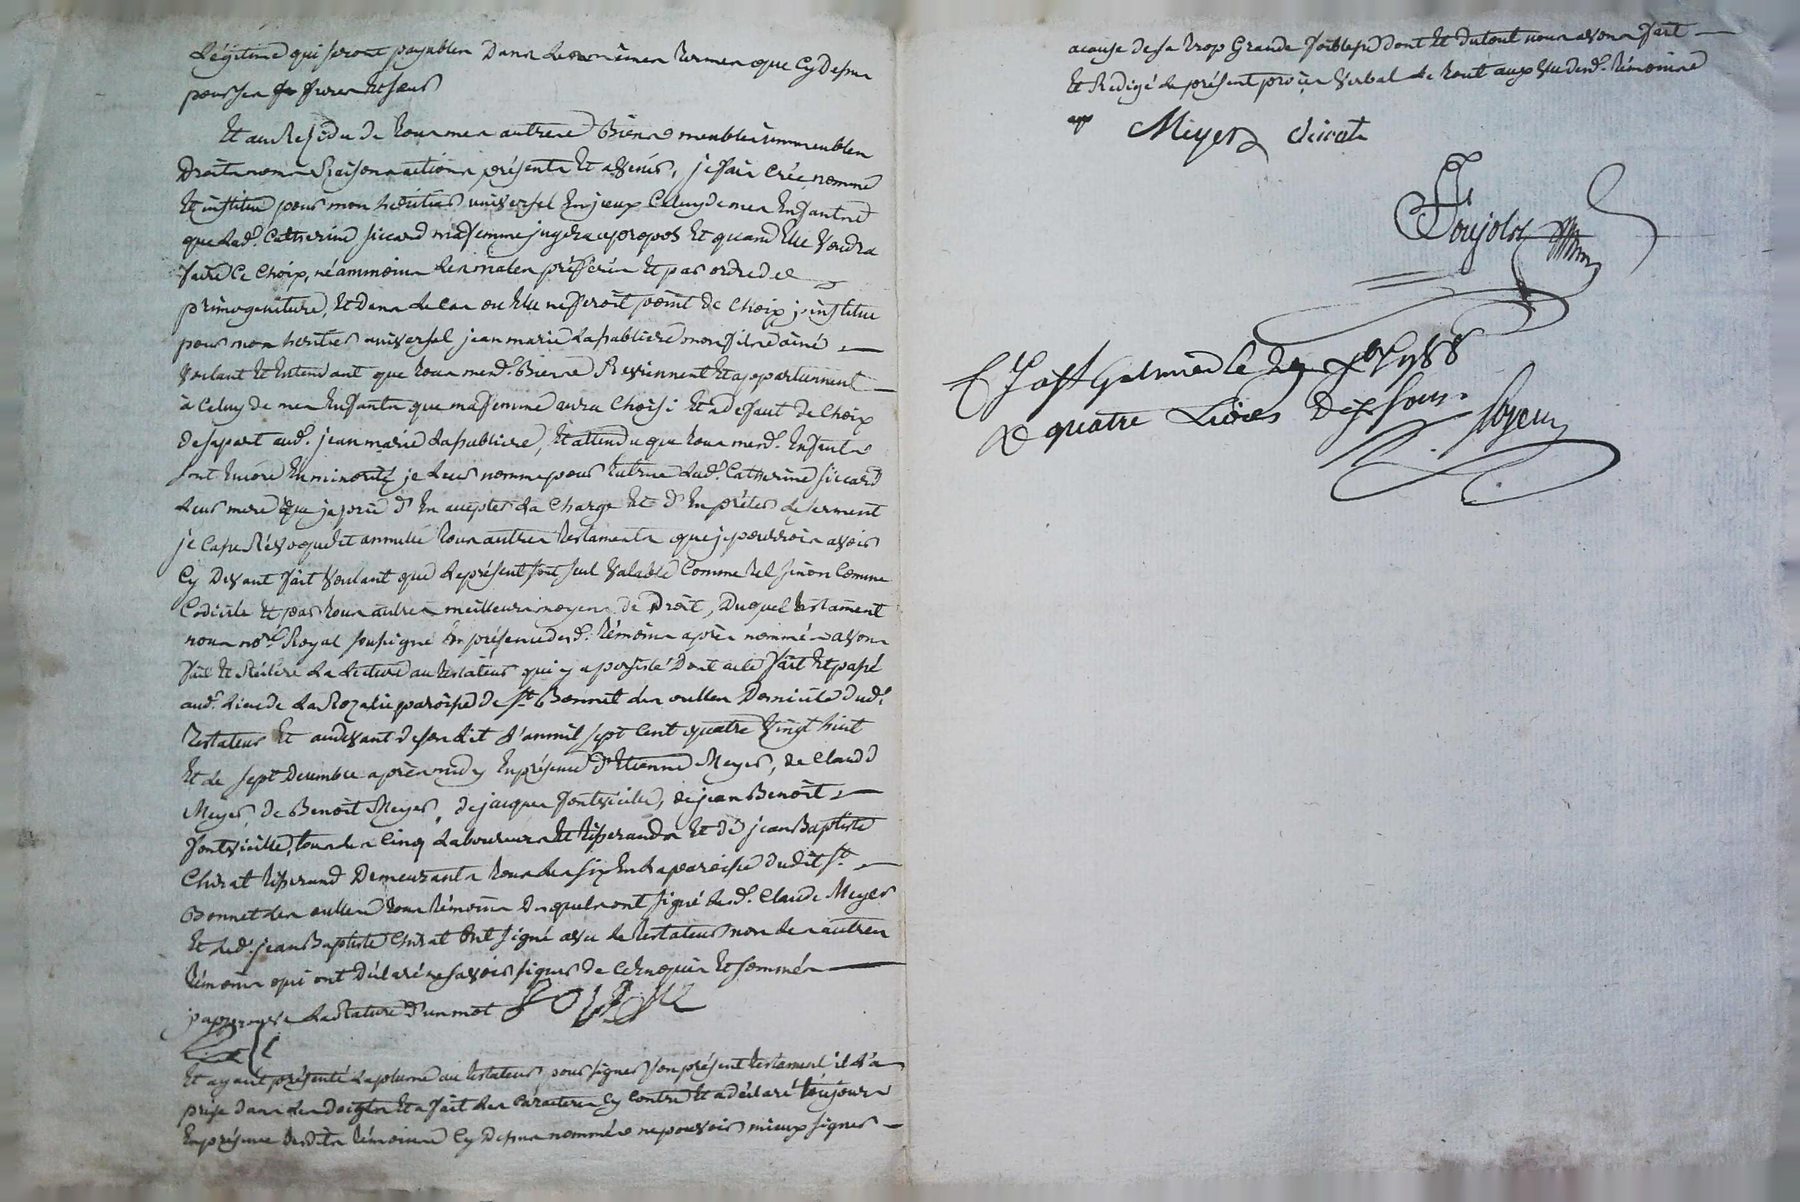 Légitime qui seront payables Dans Les mêmes termes que Cy Dessus
pour ses freres Et sœurs
Et au Residu de tous mes autres Biens meubles immeubles
Droits noms Raisons actions présents Et avenir, je fais Crée nomme
Et institue pour mon heritier universel Celuy de mes Enfants
que Lad.e Catherine siccard ma femme jugera apropos Et quand Elle Voudra
faire Ce Choix, néammoins Les males préférés Et par ordre de
primogeniture, Et Dans Le Cas ou Elle ne feroit point de Choix j'institue
pour mon heritier universel jean marie Lasabliere mon fils ainé
Voulant Et Entendant que tous mesd. Biens Reviennent Et appartiennent
à Celuy de mes Enfants que ma femme aura Choisi Et a defaut de Choix
de sa part aud. jean marie Lasabliere, Et attendu que tous mesd. Enfants
sont Encore En minorité je Leur nomme pour tutrice Lad.e Catherine siccard
Leur mere que je prie d'En accepter La Charge Et d'En prêter Le serment
je Casse Révoque Et annulle tous autres testaments que je pourrois avoir
Cy Devant fait Voulant que Le présent soit seul Valable Comme tel sinon Comme
Codicile Et par tous autres meilleurs moyens de Droit, Duquel testament
nous no.re Royal soussigné En présence desd. témoins après nommés avons
fait Et Réiteré La Lecture au testateur qui y a persisté Dont acte fait Et passé
aud. Lieu de La paroisse de S.t Bonnet des oulles Domicile dud.
testateur Et audevant de son Lit L'an mil sept Cent quatre Vingt huit
Et Le sept Decembre après midy En présence d'Etienne Meyer, de Claude
Meyer, de Benoit Meyer, de jacques fontvieille, de jean Benoit
fontvieille, tous Les Cinq Laboureurs Et tisserands Et de jean Baptiste
Chirat tisserand Demeurants tous Les six En La paroisse dudit S.t
Bonnet des oulles tous témoins Desquels ont signé Led. Claude Meyer
Et Led. jean Baptiste Chirat Ont signé avec Le testateur non Les autres
témoins qui ont Déclaré ne savoir signer de Ce Enquis Et sommés
japprouve La Rature d'un mot
Et ayant présenté La plume au testateur pour signer son présent testament il L'a
prise dans Les doigts Et a fait Les Caracteres Cy Contre Et a déclaré toujours
En présence Desdits témoins Cy Dessus nommés ne pouvoir mieux signer
acause de sa trop Grande foiblesse dont Et dutout nous avons fait
Et Redigé Le présent procès Verbal Le tout aux Vu desd. témoins
Meyer chirat
Poujols
C St Galmier le
R quatre Livres Dix sous.